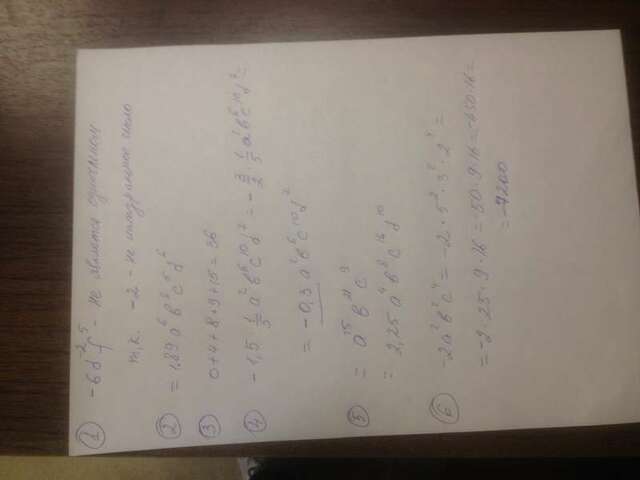 ① -6d⁻²f⁵ - не является одночленом
т.к. -2 - не натуральное число
② = 1,89a⁶b⁸c⁵d⁶
③ 0+4+8+9+15=36
④ -1,5 · 1/5 a²b⁶c¹⁰d² = -3/2 · 1/5 a²b⁶c¹⁰d² =
= -0,3a²b⁶c¹⁰d²
⑤ = a¹⁵b²¹c⁹
= 2,25a⁴b⁸c¹⁶d¹⁰
⑥ -2a²b²c⁴ = -2 · 5² · 3² · 2⁴ =
= -2 · 25 · 9 · 16 = -50 · 9 · 16 = -450 · 16 =
= -7200